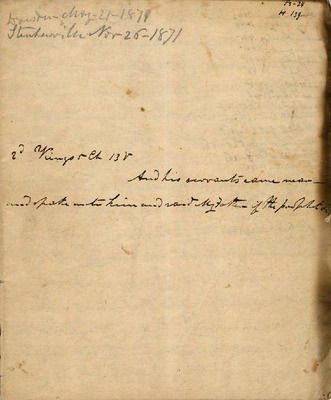 H 139
May-21-1871
Steubenville Nov-26-1871
2d Kings 5 Ch 13V
And his servants came near
and spake unto him and said My Father if the prophet